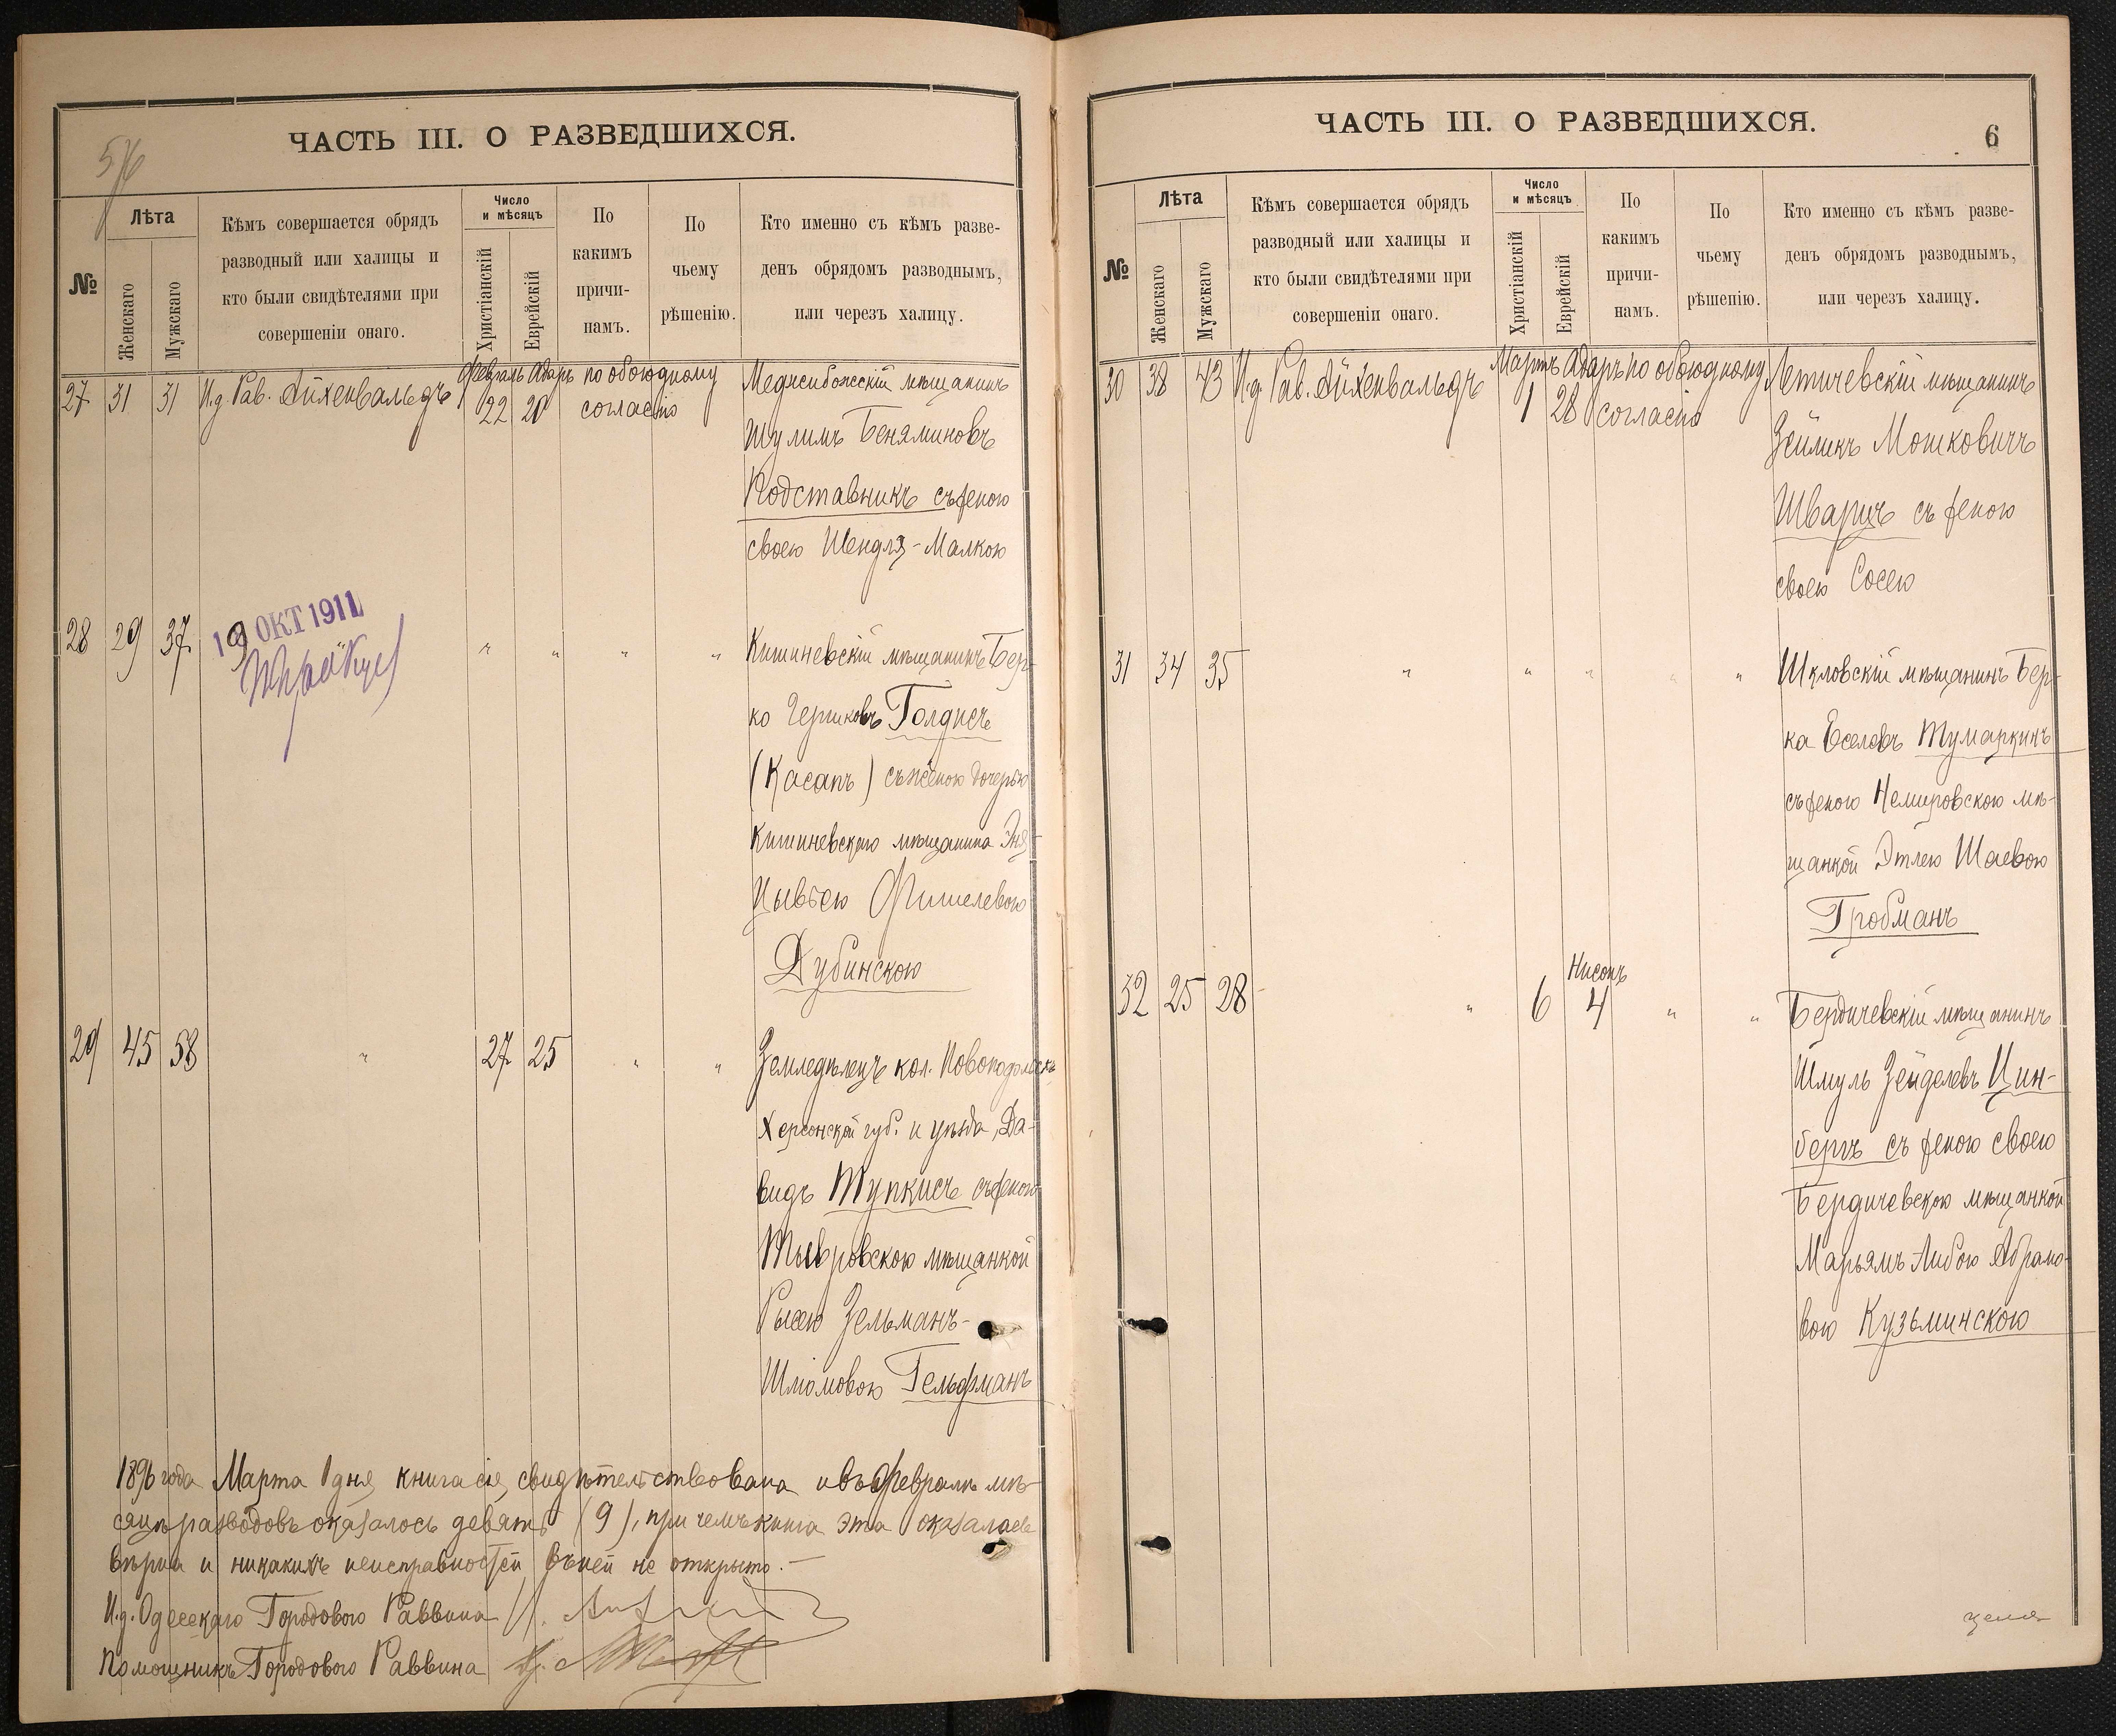 ЧАСТЬ III. О РАЗВЕДШИХСЯ.
№
Лѣта
Женскаго
Мужскаго
Кѣмъ совершается обрядъ
разводный или халицы и
кто были свидѣтелями при
совершеніи онаго.
Число
и мѣсяцъ
Христіанскій
Еврейскій
По
какимъ
причи-
намъ.
По
чьему
рѣшенію.
Кто именно съ кѣмъ разве-
денъ обрядомъ разводнымъ,
или черезъ халицу.
27 31 31 И.д. Рав. Айхенвальдъ
Февраль Адаръ
22 20
по обоюдному
согласію
Меджибожескій мѣщанинъ
Шулимъ Беняминовъ
Подставникъ съ женою
своею Шендля-Малкою
28 29 37 " " " "
19 ОКТ 1911
Кишиневскій мѣщанинъ Бер-
ко Гершковъ Голдисъ
(Касапъ) съ женою дочерью
Кишиневскаго мѣщанина Эня-
Цывьею Фишелевою
Дубинскою
29 45 58 " 27 25 " "
Земледѣлецъ кол. Новоподольскъ
Херсонской губ. и уѣзда, Да-
видъ Тупкисъ съ женою
Тывровскою мѣщанкой
Рысею Зельманъ-
Шлiомовою Гельфманъ
1896 года Марта 1 дня книга сія свидѣтельствована и въ Февралѣ мѣ-
сяцѣ разводовъ оказалось девять (9), при чемъ книга эта оказалась
вѣрна и никакихъ неисправностей въ ней не открыто.-
И.д. Одесскаго Городового Раввина
Помощникъ Городового Раввина
ЧАСТЬ III. О РАЗВЕДШИХСЯ.
6
№
Лѣта
Женскаго
Мужскаго
Кѣмъ совершается обрядъ
разводный или халицы и
кто были свидѣтелями при
совершеніи онаго.
Число
и мѣсяцъ
Христіанскій
Еврейскій
По
какимъ
причи-
намъ.
По
чьему
рѣшенію.
Кто именно съ кѣмъ разве-
денъ обрядомъ разводнымъ,
или черезъ халицу.
30 38 43 И.д. Рав. Айхенвальдъ
Мартъ Адаръ
1 28
по обоюдному
согласію
Летичевскій мѣщанинъ
Зейликъ Мошковичъ
Шварцъ съ женою
своею Сосею
31 34 35 " " " " "
Шкловскій мѣщанинъ Бер-
ка Еселевъ Тумаркинъ
съ женою Немировскою мѣ-
щанкой Этлею Шаевою
Гробманъ
Нисонъ
32 25 28 " 6 4 " "
Бердичевскій мѣщанинъ
Шмуль Зейделевъ Цин-
бергъ съ женою своею
Бердичевскою мѣщанкой
Марьямъ Либою Абрамо-
вою Кузьминскою